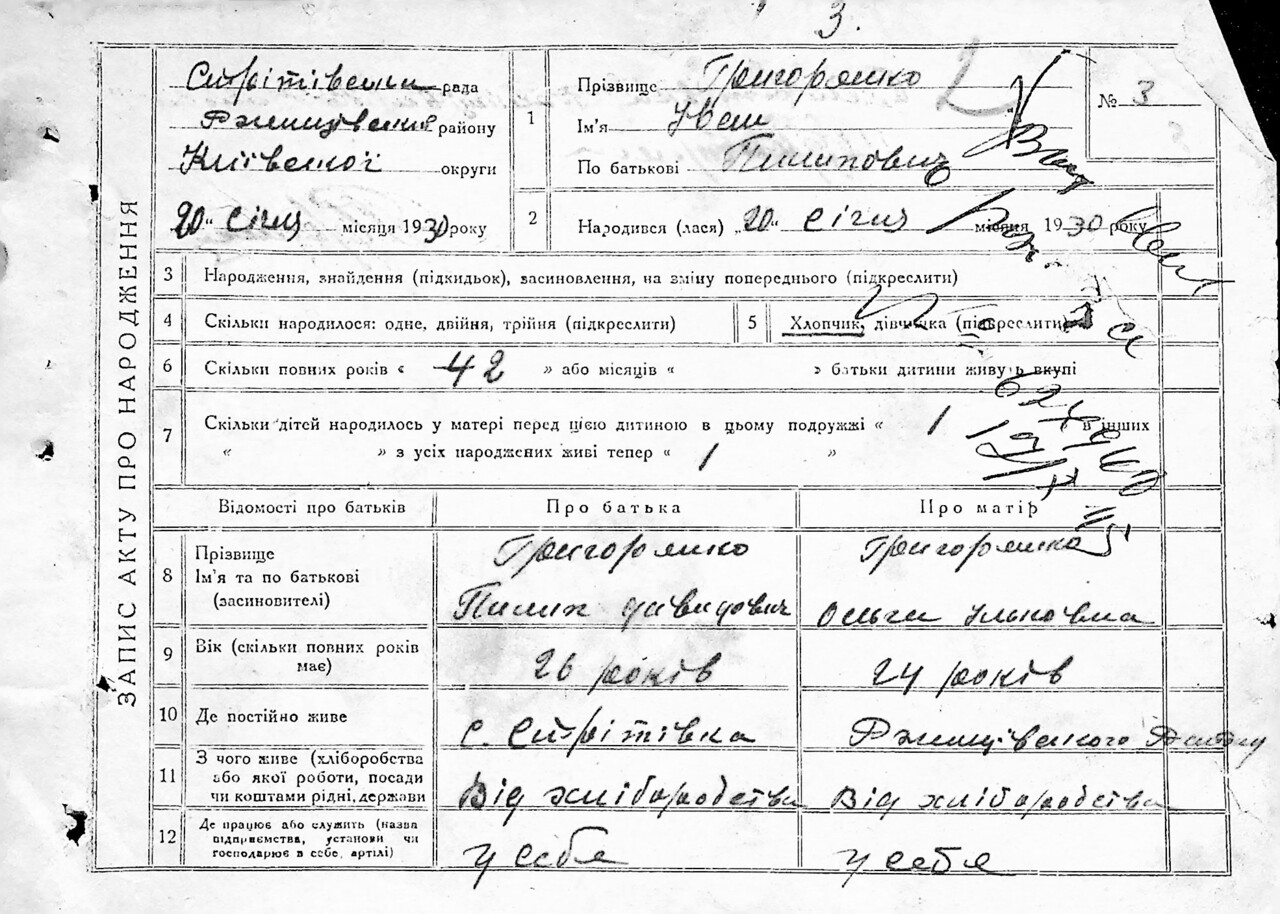 3.
ЗАПИС АКТУ ПРО НАРОДЖЕННЯ
Стрітівська рада
Ржищівський району
Київської округи
20 " січня місяця 1930 року
1
Прізвище Григоряшко
Ім'я Іван
По батькові Пилипович
№ 3
2
Народився (лася) „ 20 " січня місяця 1930 року
3 Народження, знайдення (підкидьок), засиновлення, на зміну попереднього (підкреслити)
4 Скільки народилося: одне, двійня, трійня (підкреслити)
5 Хлопчик, дівчинка (підкреслити)
6 Скільки повних років « 42 » або місяців « » батьки дитини живуть вкупі
7 Скільки дітей народилось у матері перед цією дитиною в цьому подружжі « 1 в інших
« » з усіх народжених живі тепер « 1 »
Відомості про батьків Про батька Про матір
8 Прізвище Григоряшко Григоряшко
Ім'я та по батькові
(засиновителі) Пилип Давидович Ольга Ільковна
9 Вік (скільки повних років
має) 26 років 24 років
10 Де постійно живе с. Стрітівка Ржищівського
11 З чого живе (хліборобства
або якої роботи, посади
чи коштами рідні, держави Від хліборобства Від хліборобства
12 Де працює або служить (назва
підприємства, установи чи
господарює в себе, артілі) у себе у себе